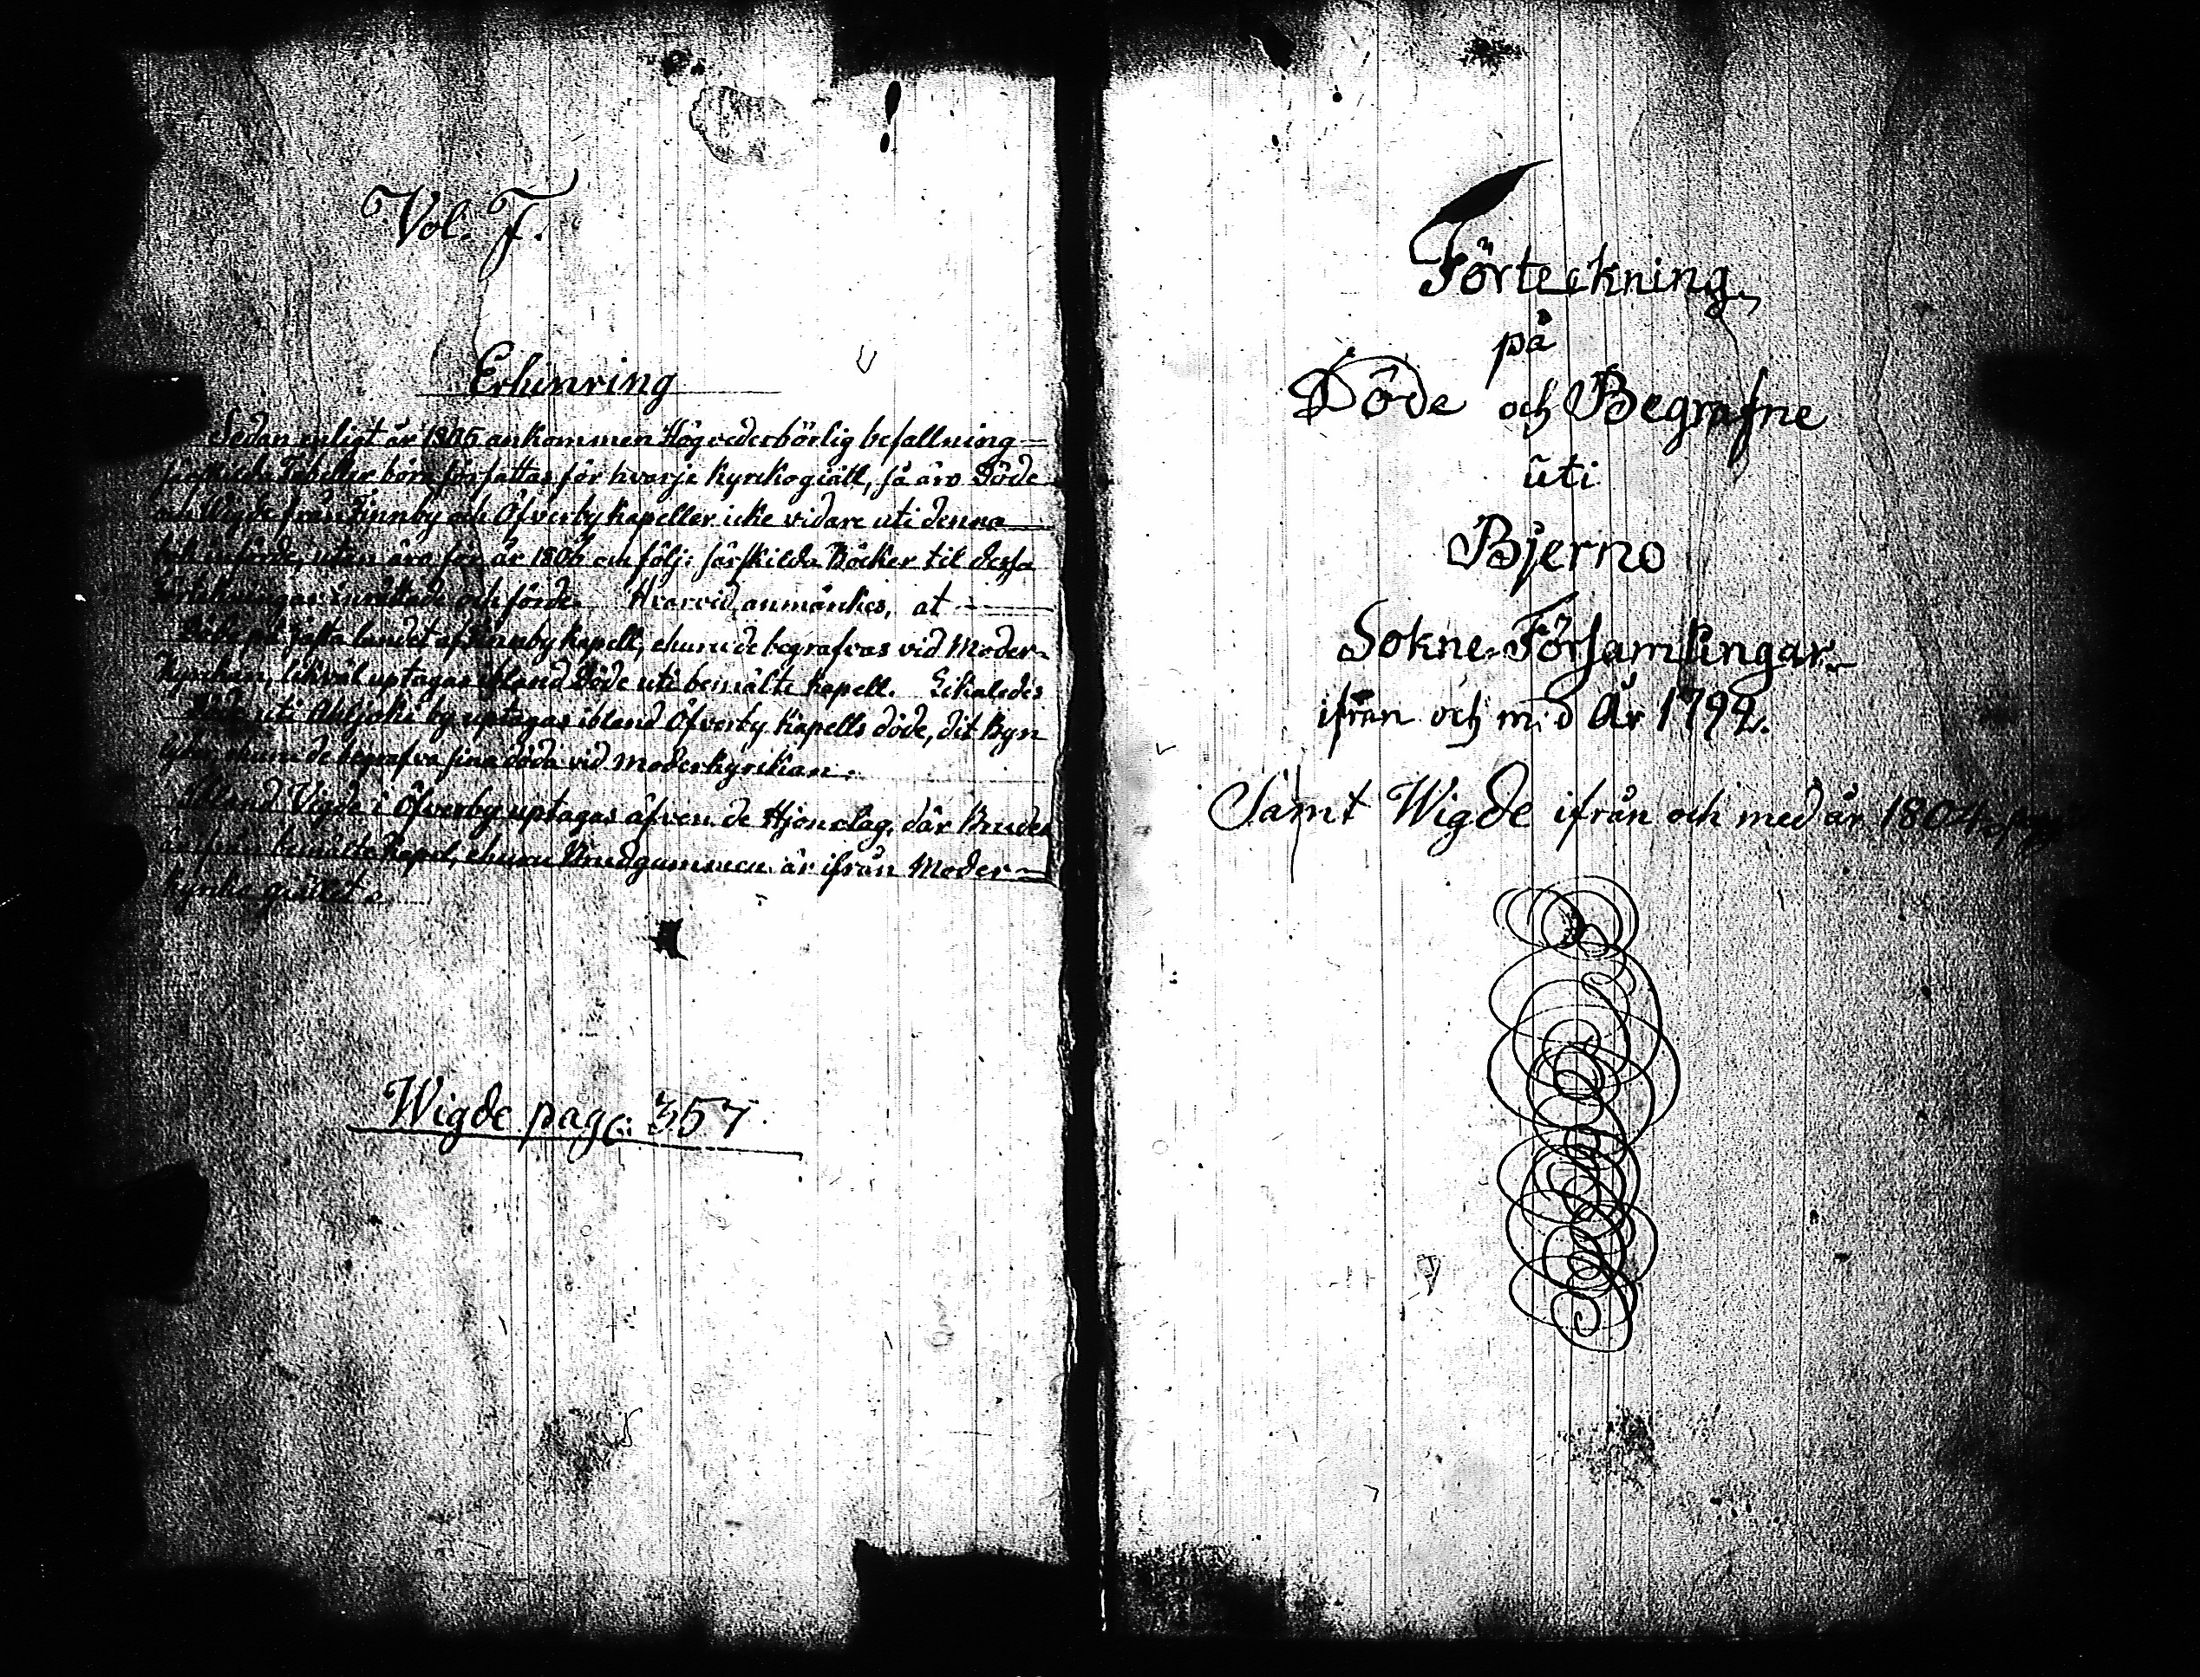 Vol. F.
Erhinring
Sedan enligt år 1805 ankommen Högvederbörlig befallning
särskilda Tabeller böra författas för hvarje Kyrkogiäll, så äro Döde
och Wigde från Finnby och Öfverby Kapeller icke vidare uti denna
bok införde, utan äro för år 1806 och följ: särskilda Böcker til dessa
Förtekningar inrättade och förde. Hvarvid anmärkes, at
Döde på fasta landet af Finnby Kapell, ehuru de begrafvas vid Moder-
Kyrkan, likväl uptagas ibland Döde uti bemälte Kapell. Likaledes
Döde uti by uptagas ibland Öfverby Kapells döde, dit Byn
lyder, ehuru de begrafva sina döda vid Moderkyrkan.
Ibland Vigde i Öfverby uptagas äfven de Hjonelag, där Bruden
är från bemälte Kapel, ehuru Brudgummen är ifrån Moder-
kyrko giället.
Wigde pag: 357
Förteckning
på
Döde och Begrafne
uti
Bjerno
Sokne-Församlingar
ifrån och med År 1792.
Samt Wigde ifrån och med år 1804